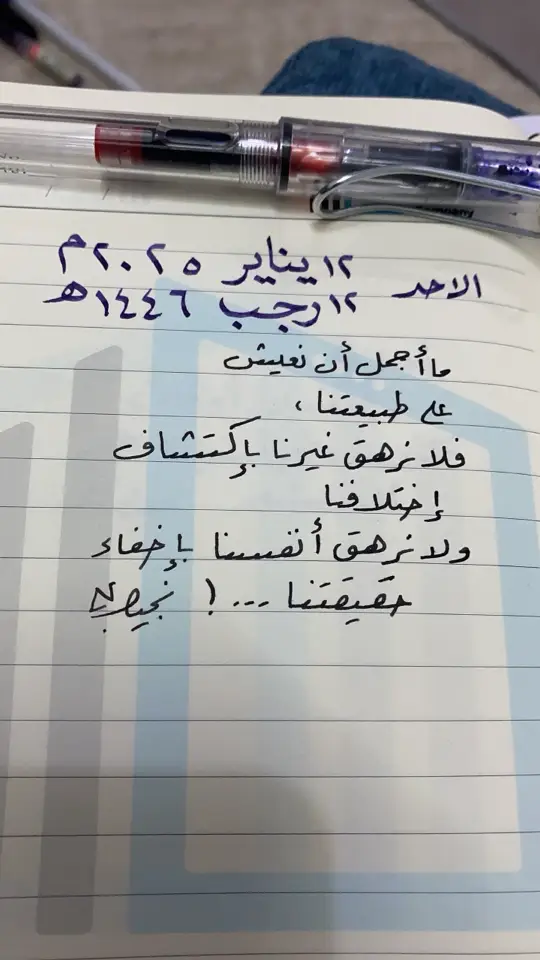 الاحد ١٢ يناير ٢٠٢٥م
١٢ رجب ١٤٤٦هـ
ما أجمل أن نعيش
على طبيعتنا ،
فلا نرهق غيرنا بإكتشاف
إختلافنا
ولا نرهق أنفسنا بإخفاء
حقيقتنا ... !